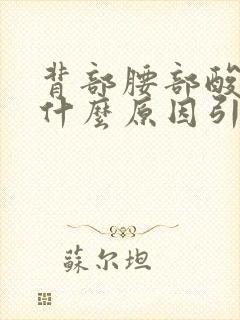 背部腰部酸
什麼原因引
蘇尔坦